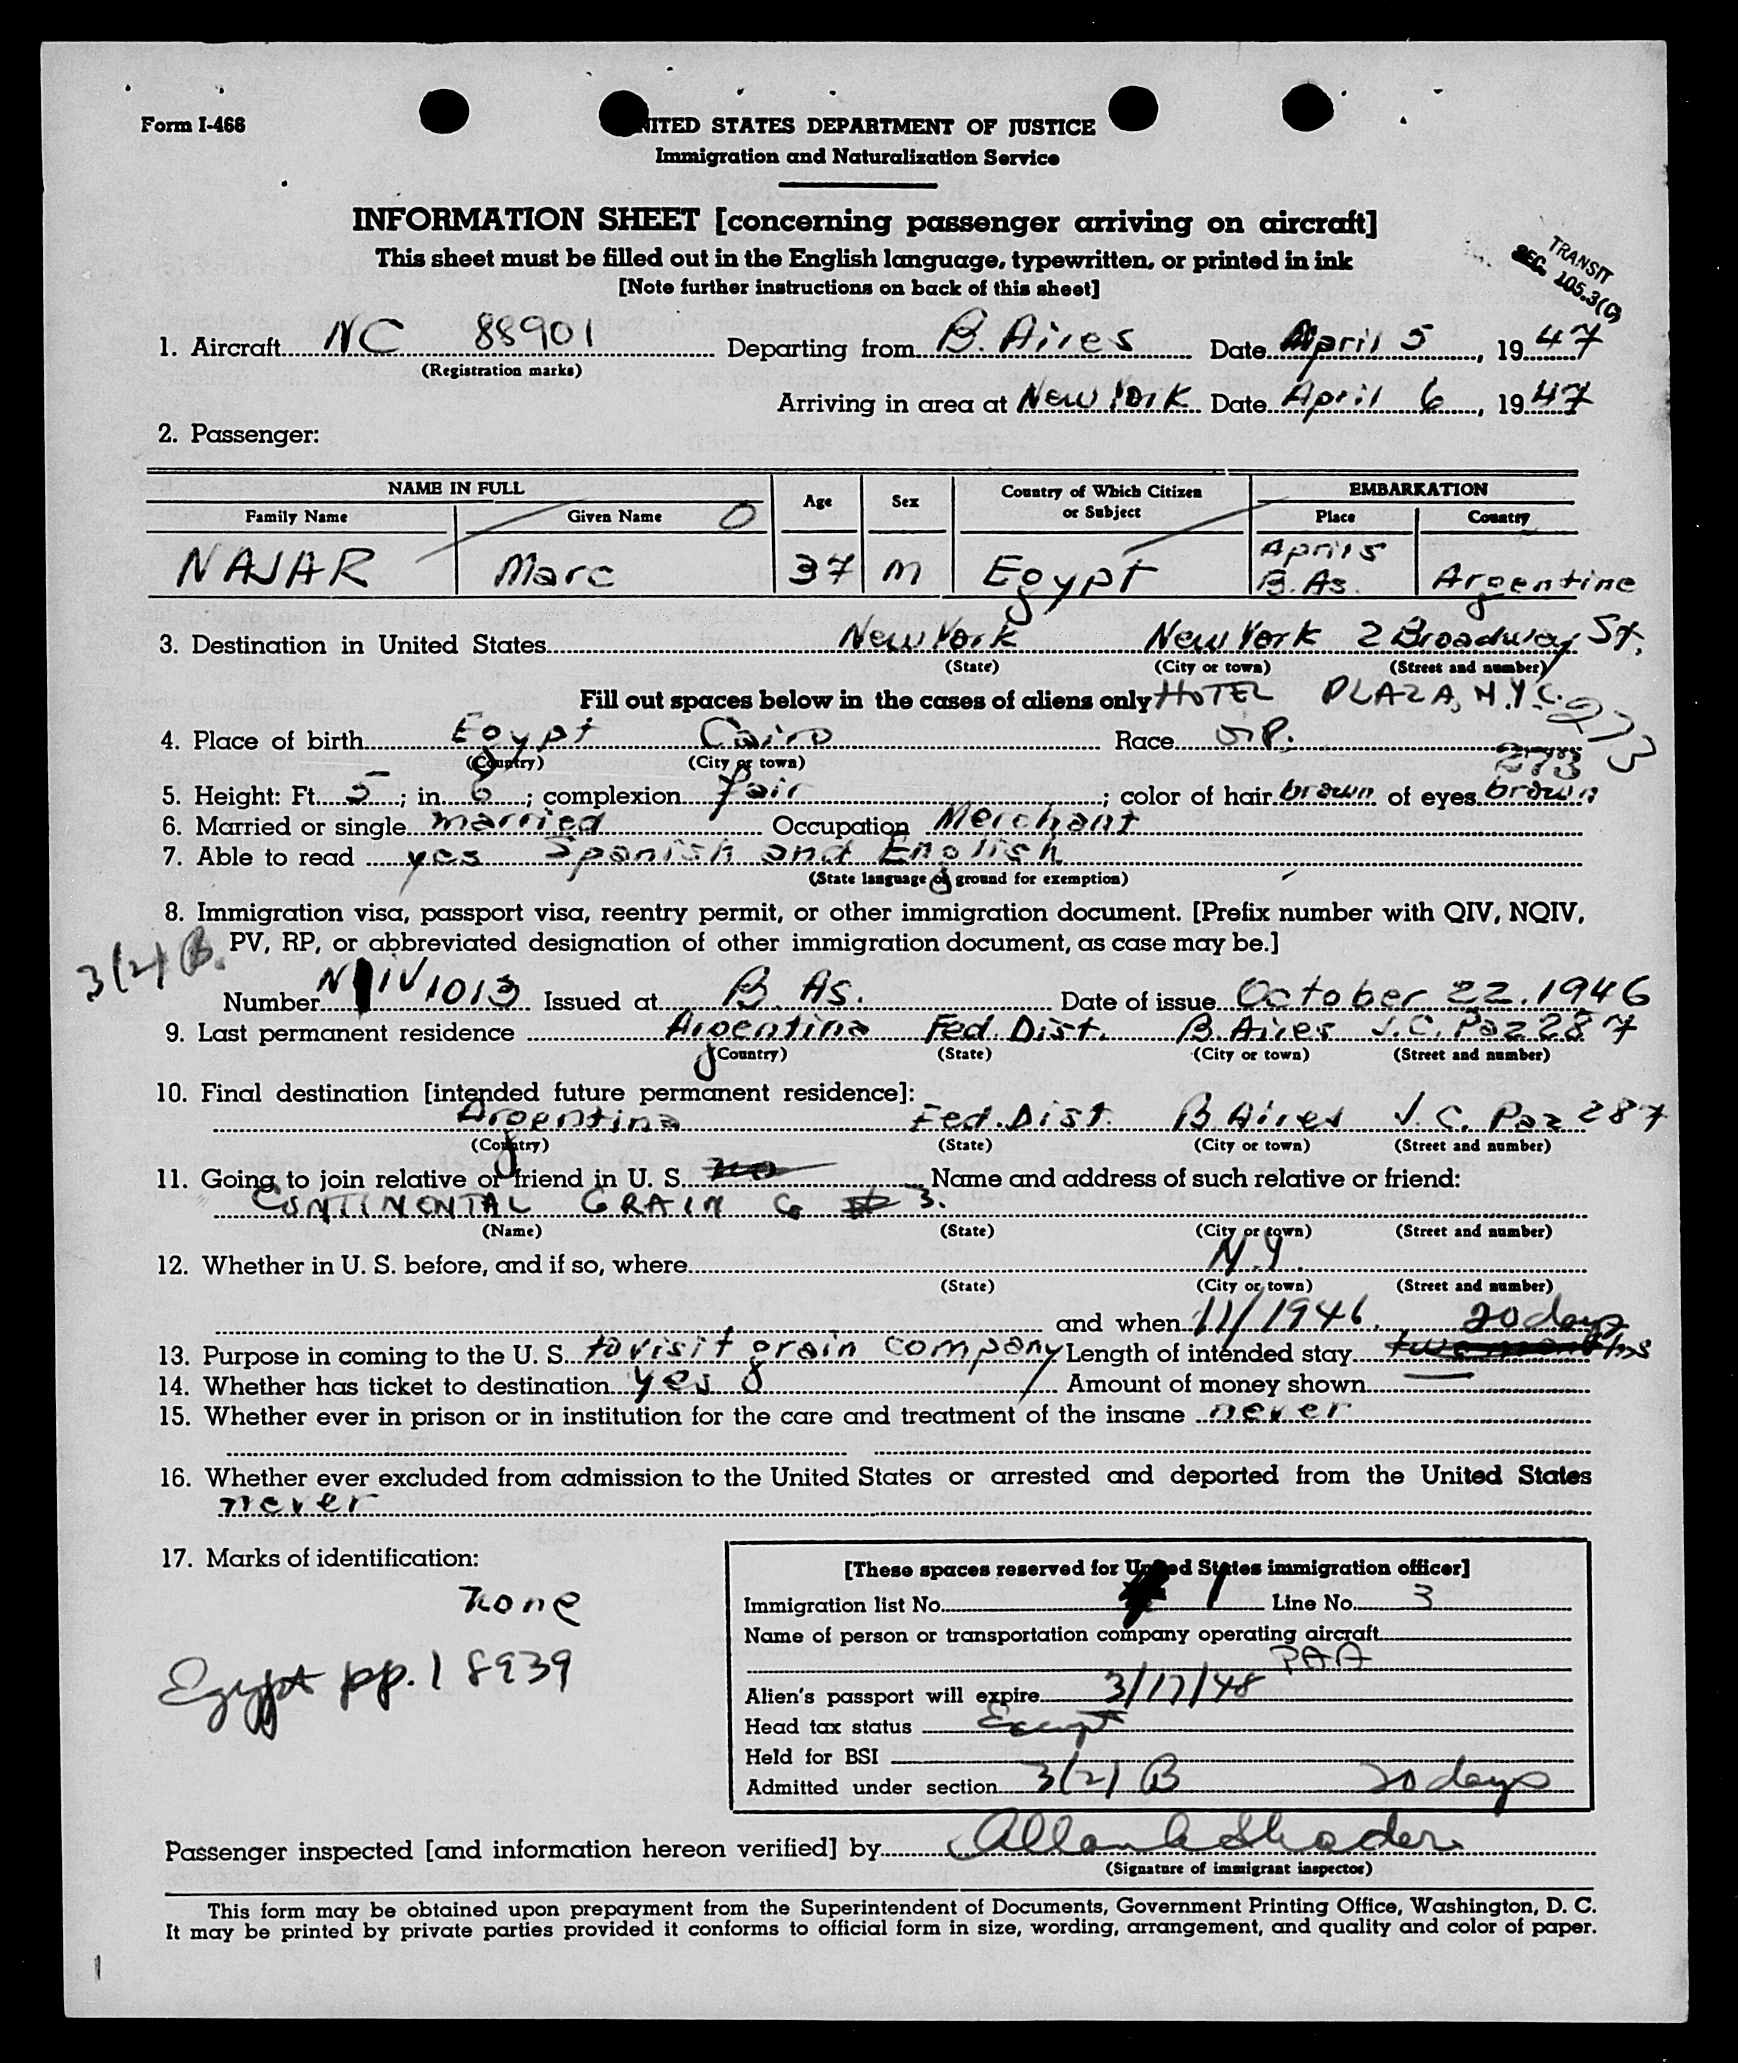 Form I-466
UNITED STATES DEPARTMENT OF JUSTICE
Immigration and Naturalization Service
INFORMATION SHEET [concerning passenger arriving on aircraft]
This sheet must be filled out in the English language, typewritten, or printed in ink
[Note further instructions on back of this sheet]
TRANSIT
SEC. 105.3(C)
1. Aircraft NC 88901 Departing from B. Aires Date April 5, 1947
(Registration marks)
Arriving in area at New York Date April 6, 1947
2. Passenger:
NAME IN FULL Age Sex Country of Which Citizen or Subject EMBARKATION
Family Name Given Name Place Country
April 5
NAJAR Marc 37 M Egypt B. As. Argentine
3. Destination in United States New York New York 2 Broadway St.
(State) (City or town) (Street and number)
Fill out spaces below in the cases of aliens only HOTEL PLAZA, N.Y.C. 273
4. Place of birth Egypt Cairo Race
(Country) (City or town) 273
5. Height: Ft. 5; in. 6; complexion fair; color of hair brown of eyes brown
6. Married or single married Occupation Merchant
7. Able to read yes Spanish and English
(State language or ground for exemption)
8. Immigration visa, passport visa, reentry permit, or other immigration document. [Prefix number with QIV, NQIV,
3(2) B. PV, RP, or abbreviated designation of other immigration document, as case may be.]
Number IV 1013 Issued at B. As. Date of issue October 22. 1946
9. Last permanent residence Argentina Fed. Dist. B. Aires J.C. Paz 287
(Country) (State) (City or town) (Street and number)
10. Final destination [intended future permanent residence]:
Argentina Fed. Dist. B. Aires J. C. Paz 287
(Country) (State) (City or town) (Street and number)
11. Going to join relative or friend in U. S. no Name and address of such relative or friend:
CONTINENTAL GRAIN Co 3.
(Name) (State) (City or town) (Street and number)
12. Whether in U. S. before, and if so, where N.Y.
(State) (City or town) (Street and number)
and when 11/1946. 20 days
13. Purpose in coming to the U. S. to visit grain company Length of intended stay two months
14. Whether has ticket to destination yes Amount of money shown
15. Whether ever in prison or in institution for the care and treatment of the insane never
16. Whether ever excluded from admission to the United States or arrested and deported from the United States
never
17. Marks of identification:
none
Egypt pp. 18939
[These spaces reserved for United States immigration officer]
Immigration list No. 1 Line No. 3
Name of person or transportation company operating aircraft
PAA
Alien's passport will expire 3/17/48
Head tax status Exempt
Held for BSI
Admitted under section 3(2) B 20 days
Passenger inspected [and information hereon verified] by
(Signature of immigrant inspector)
This form may be obtained upon prepayment from the Superintendent of Documents, Government Printing Office, Washington, D. C.
It may be printed by private parties provided it conforms to official form in size, wording, arrangement, and quality and color of paper.
1